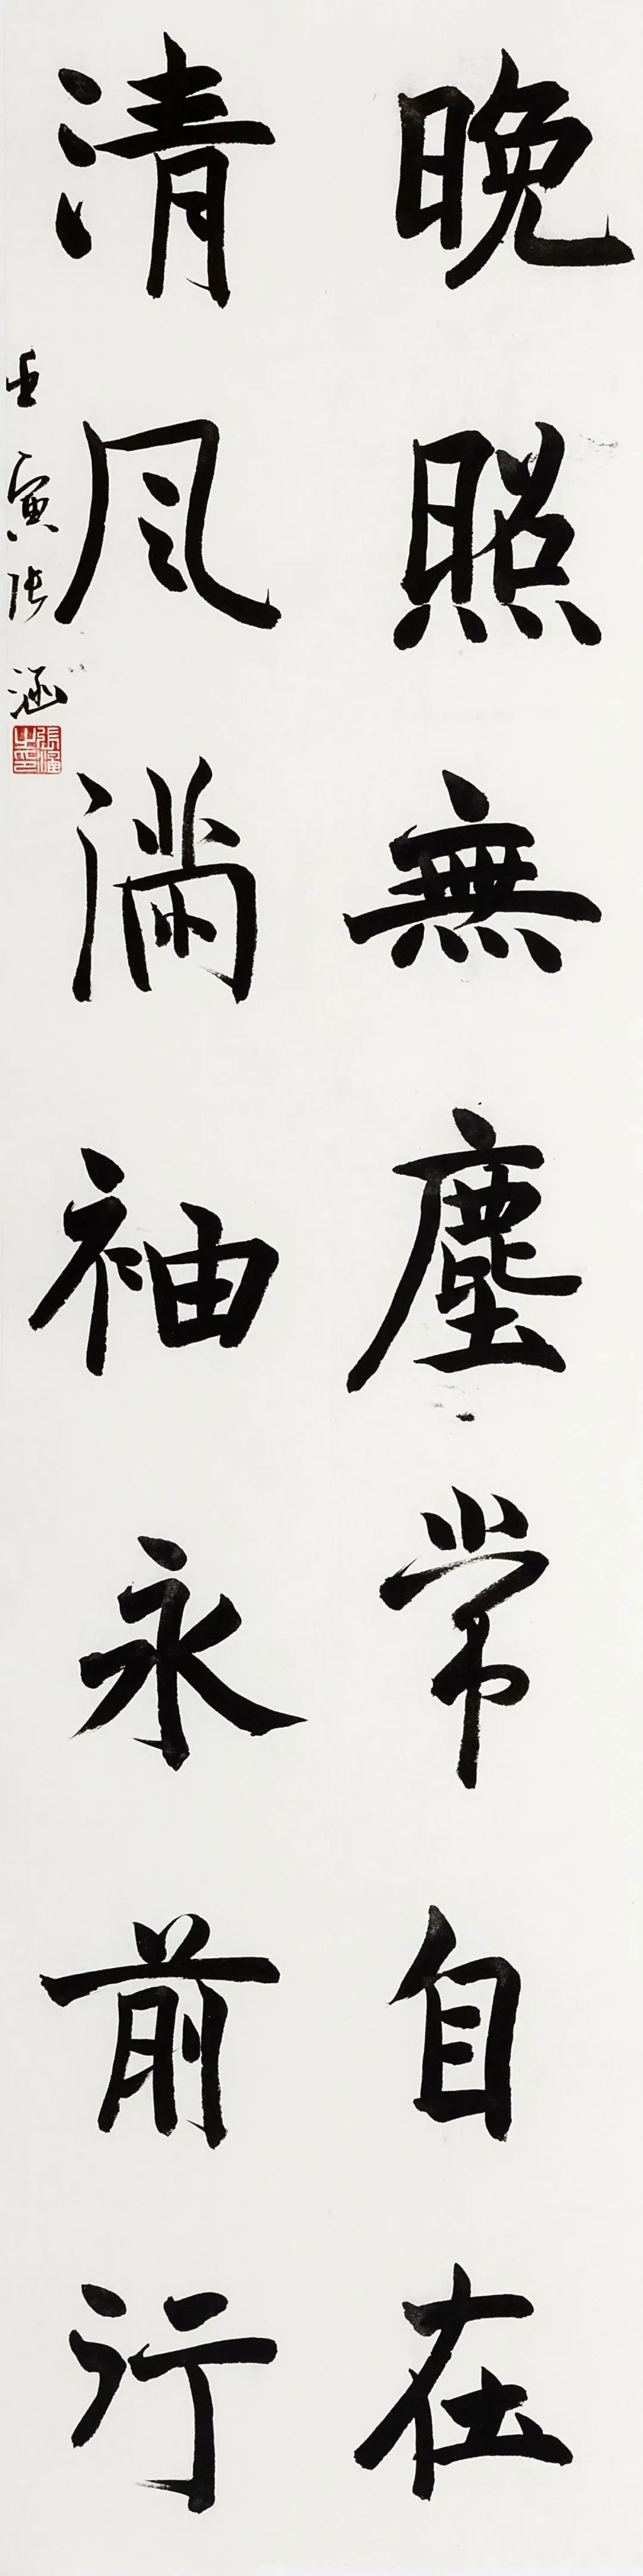 晚照無塵常自在
清風滿袖永前行
壬寅張涵
張涵之印